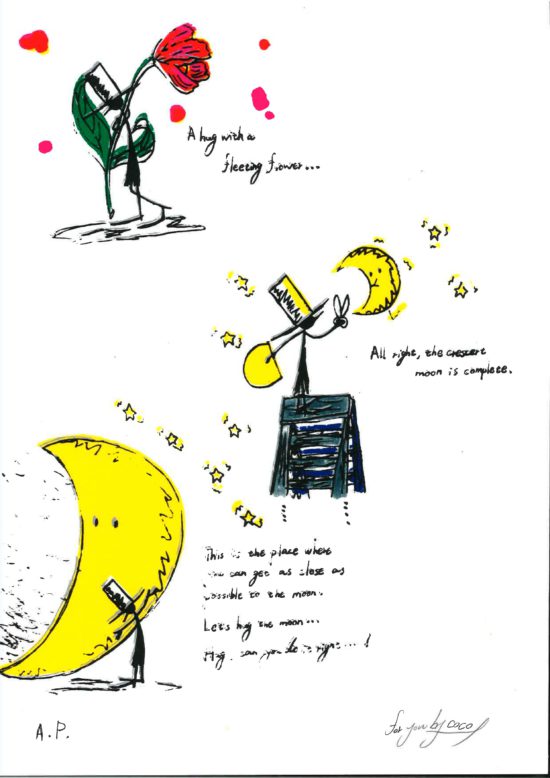 A hug with a
fleeting flower...
All right, the crescent
moon is complete.
This is the place where
you can get as close as
possible to the moon.
Let's hug the moon...
Hug, can you do it right...!
A.P.
for you by coco